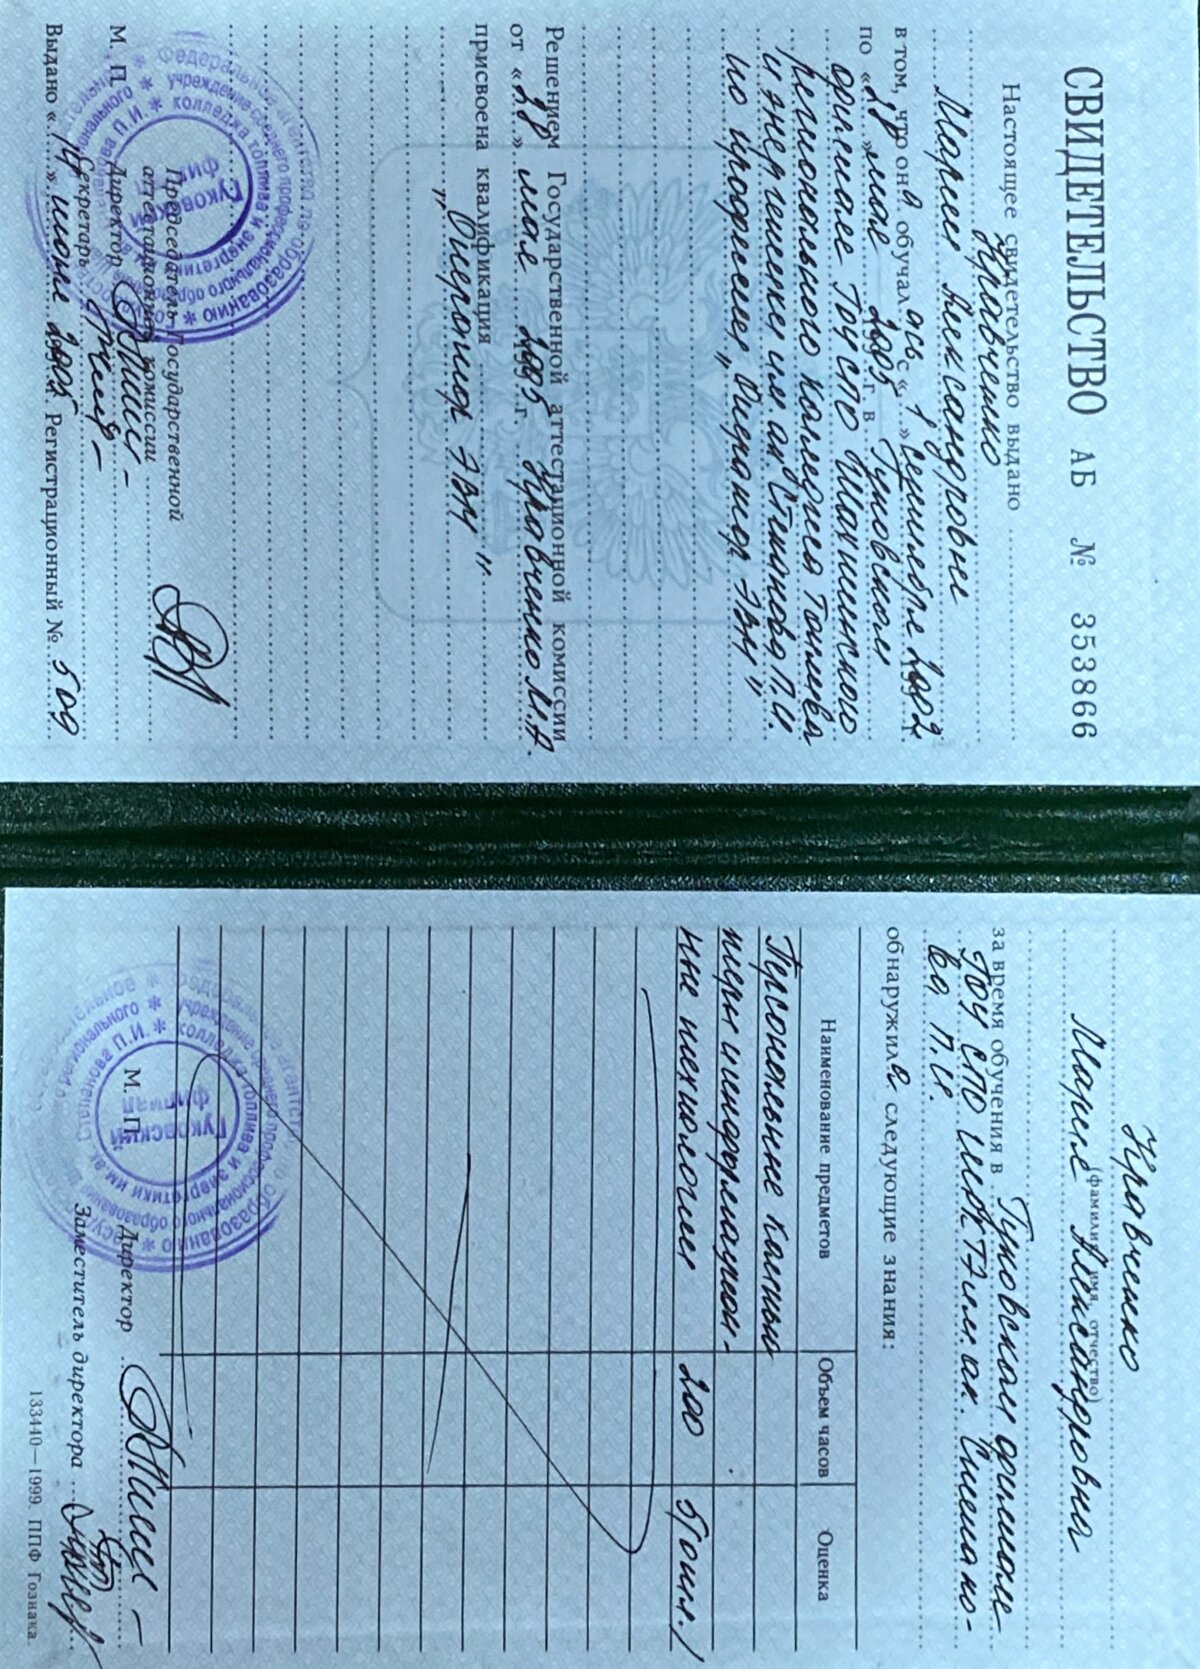 СВИДЕТЕЛЬСТВО АБ № 353866
Настоящее свидетельство выдано
Кравченко
Марине Александровне
в том, что она обучалась с «1» сентября 2002
по «28» мая 2005 г. в Гуковском
филиале ГОУ СПО Шахтинского
регионального колледжа топлива
и энергетики им. ак. Степанова П.И.
по профессии „Оператор ЭВМ"
Решением Государственной аттестационной комиссии
от «28» мая 2005 г. Кравченко М.А.
присвоена квалификация
„Оператор ЭВМ"
Председатель Государственной
аттестационной комиссии
М. П. Директор
Секретарь
Выдано «14» июня 2005 Регистрационный № 509
Федеральное агентство по образованию
учреждение среднего профессионального образования
колледжа топлива и энергетики
Гуковский
филиал
Кравченко
Марина Александровна
(фамилия, имя, отчество)
за время обучения в Гуковском филиале
ГОУ СПО ШРКТЭ им. ак. Степано-
ва П.И.
обнаружила следующие знания:
Наименование предметов Объем часов Оценка
Персональные компью
теры и информацион-
ные технологии 200 5/отл./
М. П. Директор
Заместитель директора
колледжа топлива и энергетики им. ак. Степанова П.И.
Гуковский
филиал
133440—1999. ППФ Гознака